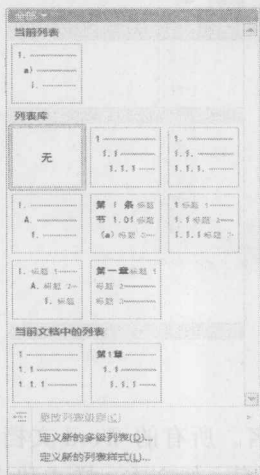 全部
当前列表
1.
a)
i.
列表库
无
1
1.1
1.1.1
1.
1.1.
1.1.1.
I.
A.
1.
第 I 条 标题
节 1.01 标题
(a) 标题 3
1 标题 1
1.1 标题 2
1.1.1 标题 3
I. 标题 1
A. 标题 2
1. 标题
第一章 标题 1
标题 2
标题 3
当前文档中的列表
1
1.1
1.1.1
第1章
1.1
1.1.1
更改列表级别(C)
定义新的多级列表(D)...
定义新的列表样式(L)...